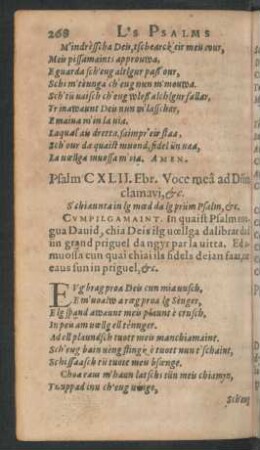 268 L's Psalms
M'indrèsscha Deis, tscheartk eir meis cour,
Meis pissamaints approuwa.
Eguarda sch'eug alchgur pass our,
Schi m'tènnga ch'eug nun m'mouwa.
Sch'tü uaisch ch'eug wless alchgur fallar,
Trinawaunt Deis nun m'lasschar,
Emaina m'in la uia.
Laqual ais dretta, saimpr'eir staa,
Sch'our da quaist muond, fidel ün uaa,
La uœlga muossa m'eia. AMEN.
Psalm CXLII. Ebr. Voce meâ ad Dñm
clamavi, &c.
S'chiaunta in lg mœd da lg prüm Psalm, &c.
CVMPILGAMAINT. In quaist Psalm
gua Dauid, chia Deis ilg uœllga dalibrar da
un grand priguel da ngyr par la uitta. Ed
muossa cun quai chia ils fidels deian faar,
eaus sun in priguel, &c.
EVg brag proa Deis cun mia uusch,
E m'uoalw a roeg proa lg Sènger,
Elg spand auaunt meis plaunt è crusch,
In peu am uœllg ell rènnger.
Ad ell plaundsch tuott meis manchiamaint.
Sch'eug bain ueng stingt, è tuott nun t'schaint,
Schi saasch tü tuott meis bsœngs.
Choa eam m'haun latschs tün meis chiamyn,
Tsuppad inu ch'eug uènge,
Sch'eug